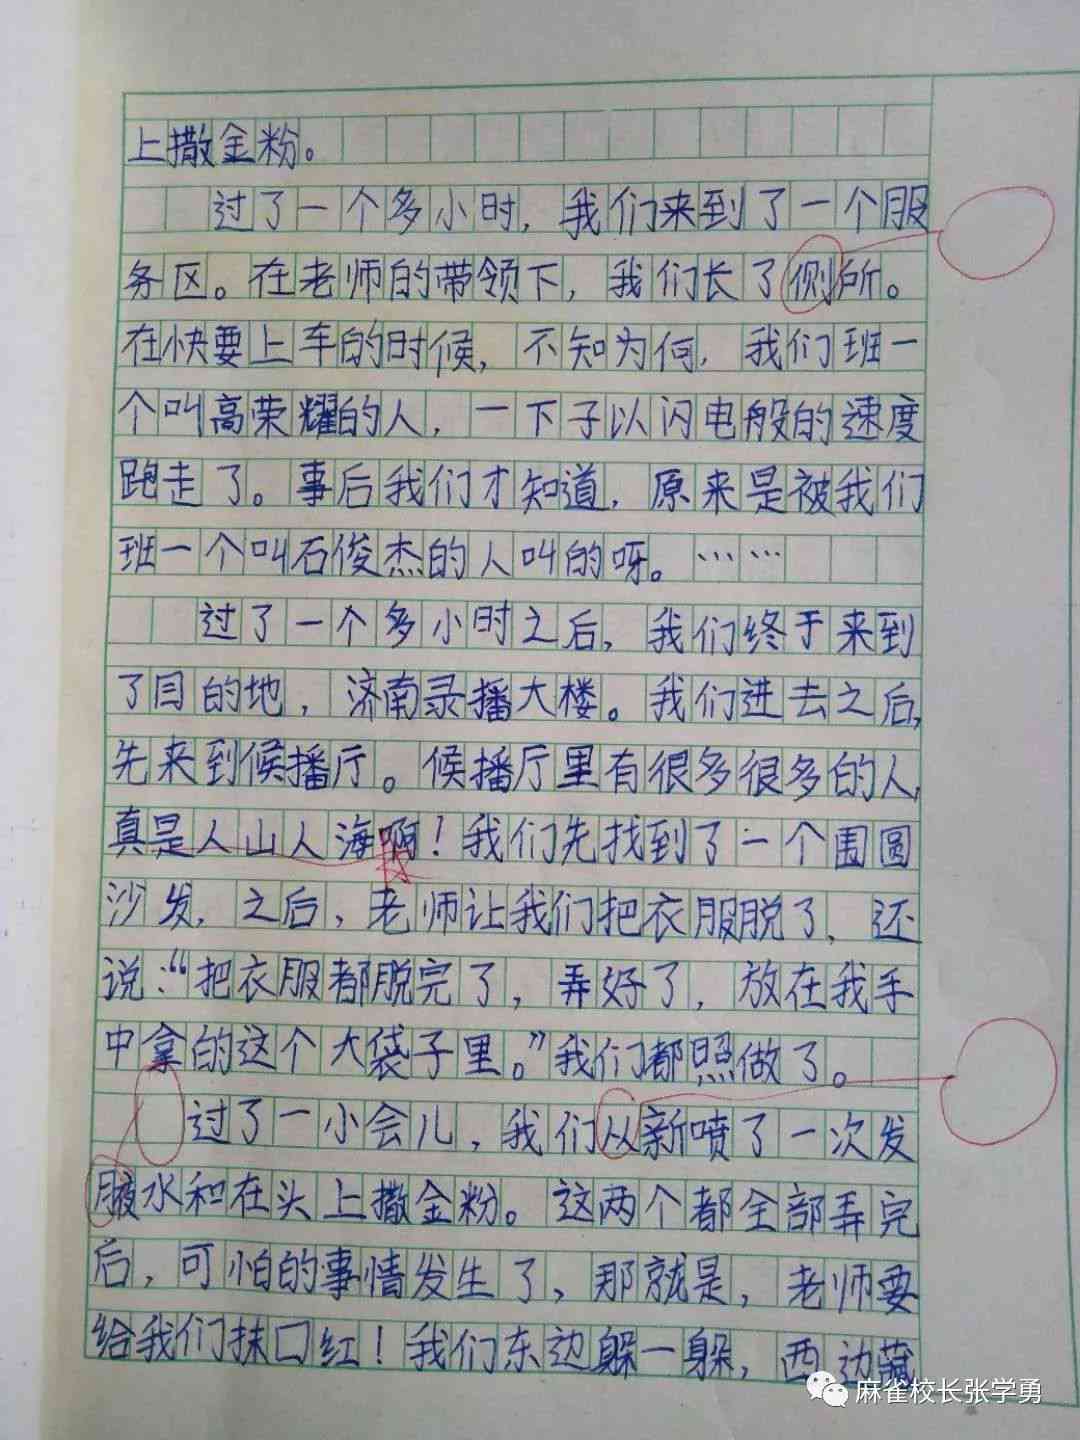 上撒金粉。
过了一个多小时，我们来到了一个服
务区。在老师的带领下，我们长了侧所。
在快要上车的时候，不知为何，我们班一
个叫高荣耀的人，一下子以闪电般的速度
跑走了。事后我们才知道，原来是被我们
班一个叫石俊杰的人叫的呀。……
过了一个多小时之后，我们终于来到
了目的地，济南录播大楼。我们进去之后，
先来到候播厅。候播厅里有很多很多的人，
真是人山人海啊！我们先找到了一个围圆
沙发，之后，老师让我们把衣服脱了，还
说：“把衣服都脱完了，弄好了，放在我手
中拿的这个大袋子里。”我们都照做了。
过了一小会儿，我们从新喷了一次发
腋水和在头上撒金粉。这两个都全部弄完
后，可怕的事情发生了，那就是，老师要
给我们抹口红！我们东边躲一躲，西边藏
麻雀校长张学勇